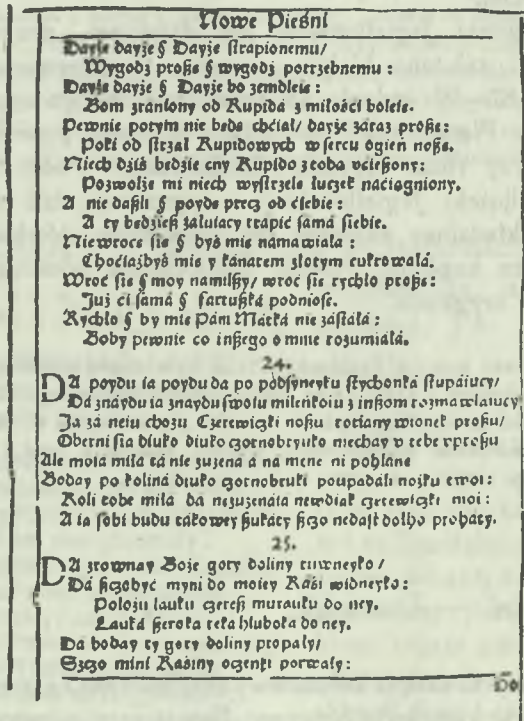 Nowe Pieśni
Dayże dayże § Dayże strapionemu/
Wygodz proszę § wygodz potrzebnemu:
Dayże dayże § Dayże bo zemdleię:
Bom zraniony od Kupidá z miłości boleię.
Pewnie potym nie będę chćiał/ dayże záraz proszę:
Poki od strzał Kupidowych w sercu ogień noszę.
Niech dźiś będźie cny Kupido z tobą vcieszony:
Pozwolże mi niech wystrzelę łuczek náćiągniony.
A nie daszli § poydę precz od ćiebie:
A ty będźiesz żáłuiącỹ trapić sámá śiebie.
Niewrocę śię § byś mię námawiáłá:
Choćiażbyś mię y kánárem złotym cukrowáłá.
Wroć śię § moy namilszy/ wroć śię rychło proszę:
Już ći sámá § fártuszká podniosę.
Rychło § by mię Páni Mátká nie zástáłá:
Boby pewnie co inszego o mnie rozumiáłá.
24.
DA poydu ia poydu da po podsyneyku stychonká stupáiucy/
Dá znáydu ia znaydu swoiu mileńkoiu z inszom rozmawlaiucy
Ja zá neiu chozu Czerewiczki noszu rotiany wionek proszu/
Oberni sia diwko diwko czornobrywko niechay v tebe vproszu
Ale moiá miłá tá nie zuzená á na mene ni pohlane
Boday po koliná diwko czornobruki poupadáli nożku twoi:
Koli tobe miłá dá nezuzenáia newdiak czerewiczki moi:
A ia sobi budu tákowey szukáty szczo nedast dolho proháty.
25.
DA zrownay Boże gory doliny riwneyko/
Dá szczobyć myni do moiey Kási widneyko:
Położu ławku czeresz murawku do ney.
Ławká szeroka reka hluboka do ney.
Dá boday ty gory doliny propáły/
Szczo mini Kásiny oczenki porwály:
Do